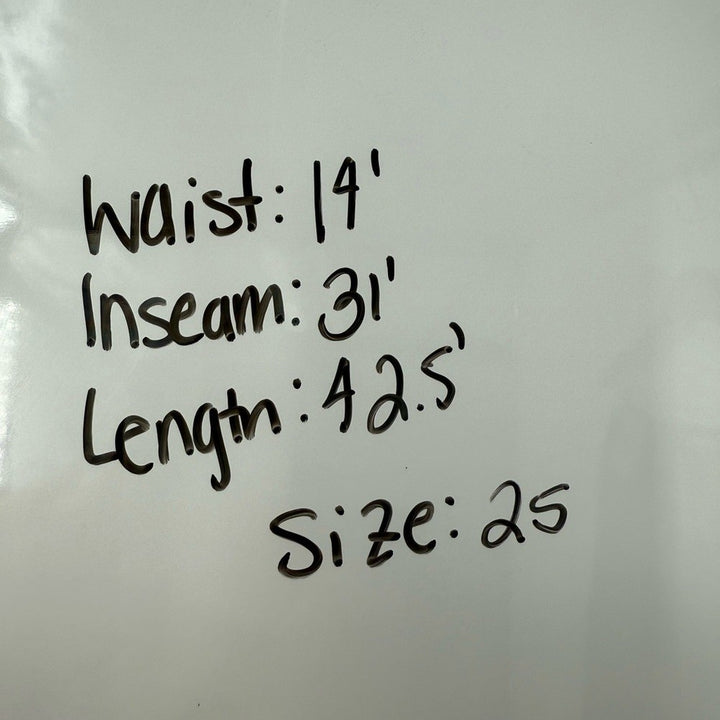 Waist: 14'
Inseam: 31'
Length: 42.5'
Size: 25